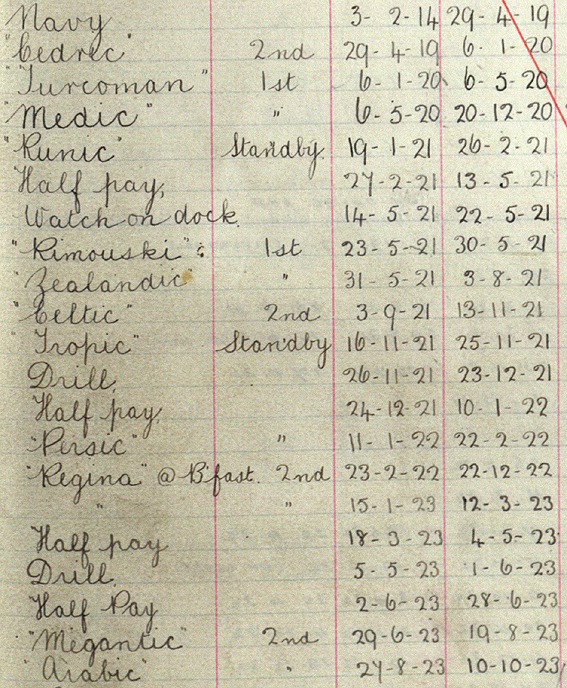 Navy 3- 2-14 29-4-19
"Cedric" 2nd 29-4-19 6-1-20
"Turcoman" 1st 6-1-20 6-5-20
"Medic" " 6-5-20 20-12-20
"Runic" Standby. 19-1-21 26-2-21
Half pay, 27-2-21 13-5-21
Watch on dock. 14-5-21 22-5-21
"Rimouski": 1st 23-5-21 30-5-21
"Zealandic" " 31-5-21 3-8-21
"Celtic" 2nd 3-9-21 13-11-21
"Tropic" Standby 16-11-21 25-11-21
Drill, 26-11-21 23-12-21
Half pay, 24-12-21 10-1-22
"Persic" " 11-1-22 22-2-22
"Regina" @ B'fast. 2nd 23-2-22 22-12-22
" " 15-1-23 12-3-23
Half pay 18-3-23 4-5-23
Drill, 5-5-23 1-6-23
Half Pay 2-6-23 28-6-23
"Megantic" 2nd 29-6-23 19-8-23
"Arabic" " 27-8-23 10-10-23